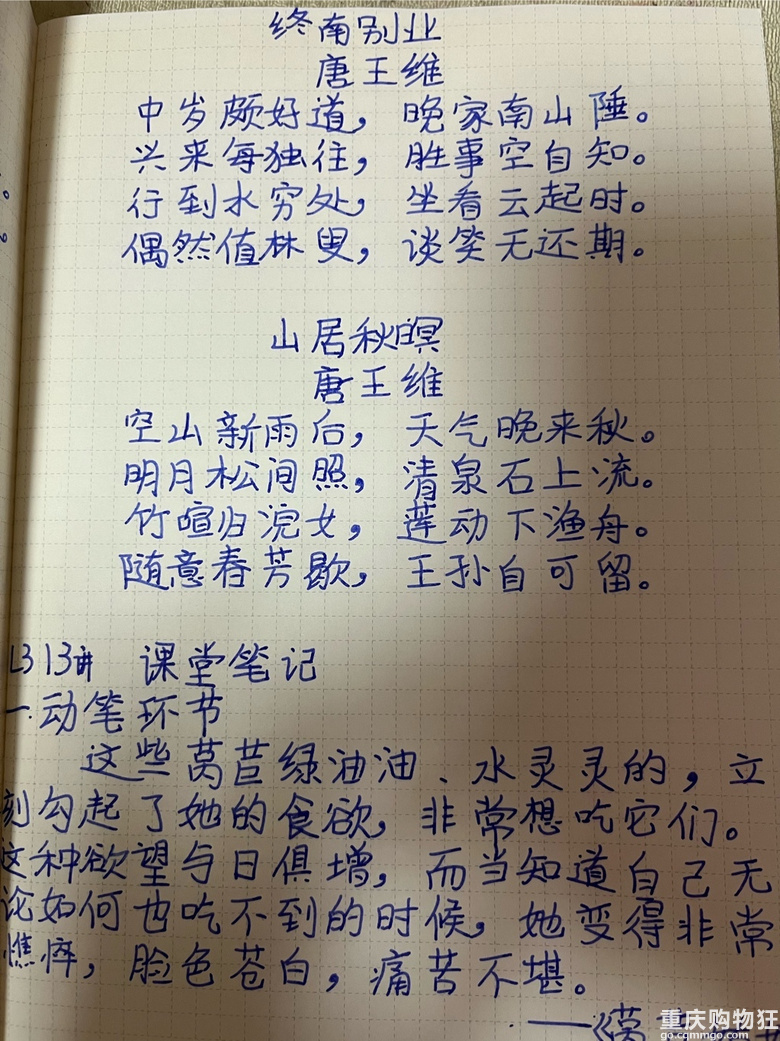 终南别业
唐王维
中岁颇好道，晚家南山陲。
兴来每独往，胜事空自知。
行到水穷处，坐看云起时。
偶然值林叟，谈笑无还期。
山居秋暝
唐王维
空山新雨后，天气晚来秋。
明月松间照，清泉石上流。
竹喧归浣女，莲动下渔舟。
随意春芳歇，王孙自可留。
L3 13讲 课堂笔记
一.动笔环节
这些莴苣绿油油、水灵灵的，立
刻勾起了她的食欲，非常想吃它们。
这种欲望与日俱增，而当知道自己无
论如何也吃不到的时候，她变得非常
憔悴，脸色苍白，痛苦不堪。
——《莴
重庆购物狂
go.cqmmgo.com